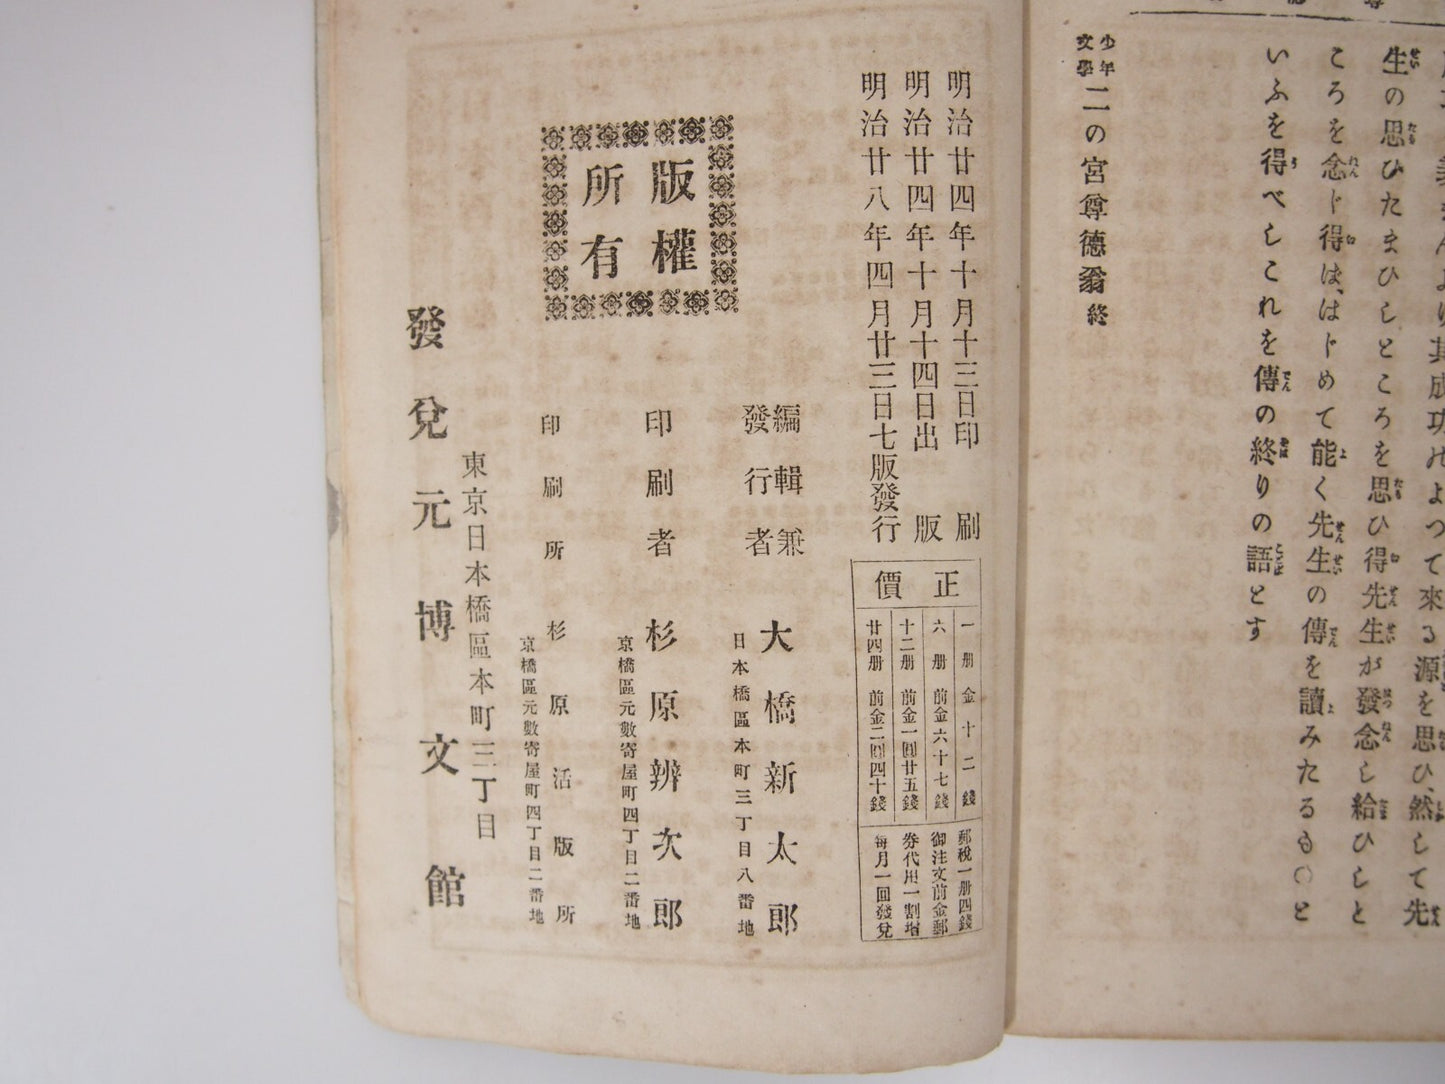 生の思ひたまひしところを思ひ得先生が發念し給ひしと
ころを念じ得は、はじめて能く先生の傳を讀みたるもの〇と
いふを得べしこれを傳の終りの語とす
少年文學 二の宮尊德翁 終
明治廿四年十月十三日印刷
明治廿四年十月十四日出版
明治廿八年四月廿三日七版發行
正價
一册 金十二錢
六册 前金六十七錢
十二册 前金一圓廿五錢
廿四册 前金二圓四十錢
郵稅一册四錢
御注文前金郵
券代用一割增
每月一回發兌
版權
所有
編輯兼
發行者 大橋新太郎
日本橋區本町三丁目八番地
印刷者 杉原辨次郎
京橋區元數寄屋町四丁目二番地
印刷所 杉原活版所
京橋區元數寄屋町四丁目二番地
東京日本橋區本町三丁目
發兌元 博文館